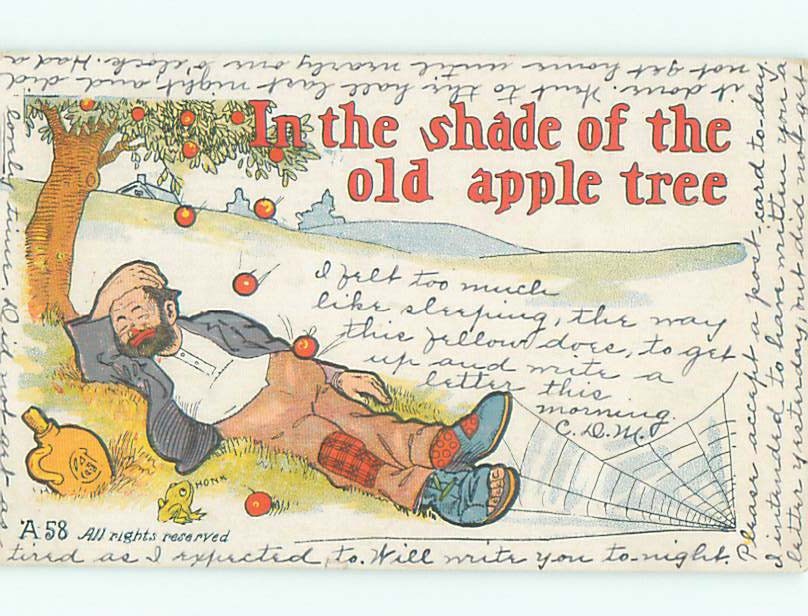 In the shade of the
old apple tree
I felt too much
like sleeping, the way
this fellow does, to get
up and write a
letter this
morning.
C. D. M.
HONK
A 58 All rights reserved
Please accept a post card to-day.
I intended to have written you a
letter yesterday, but did not get
it done. Went to the hall last night, and did
not get home until nearly one o'clock. Had a
lovely time. Did not get as
tired as I expected to. Will write you to-night.